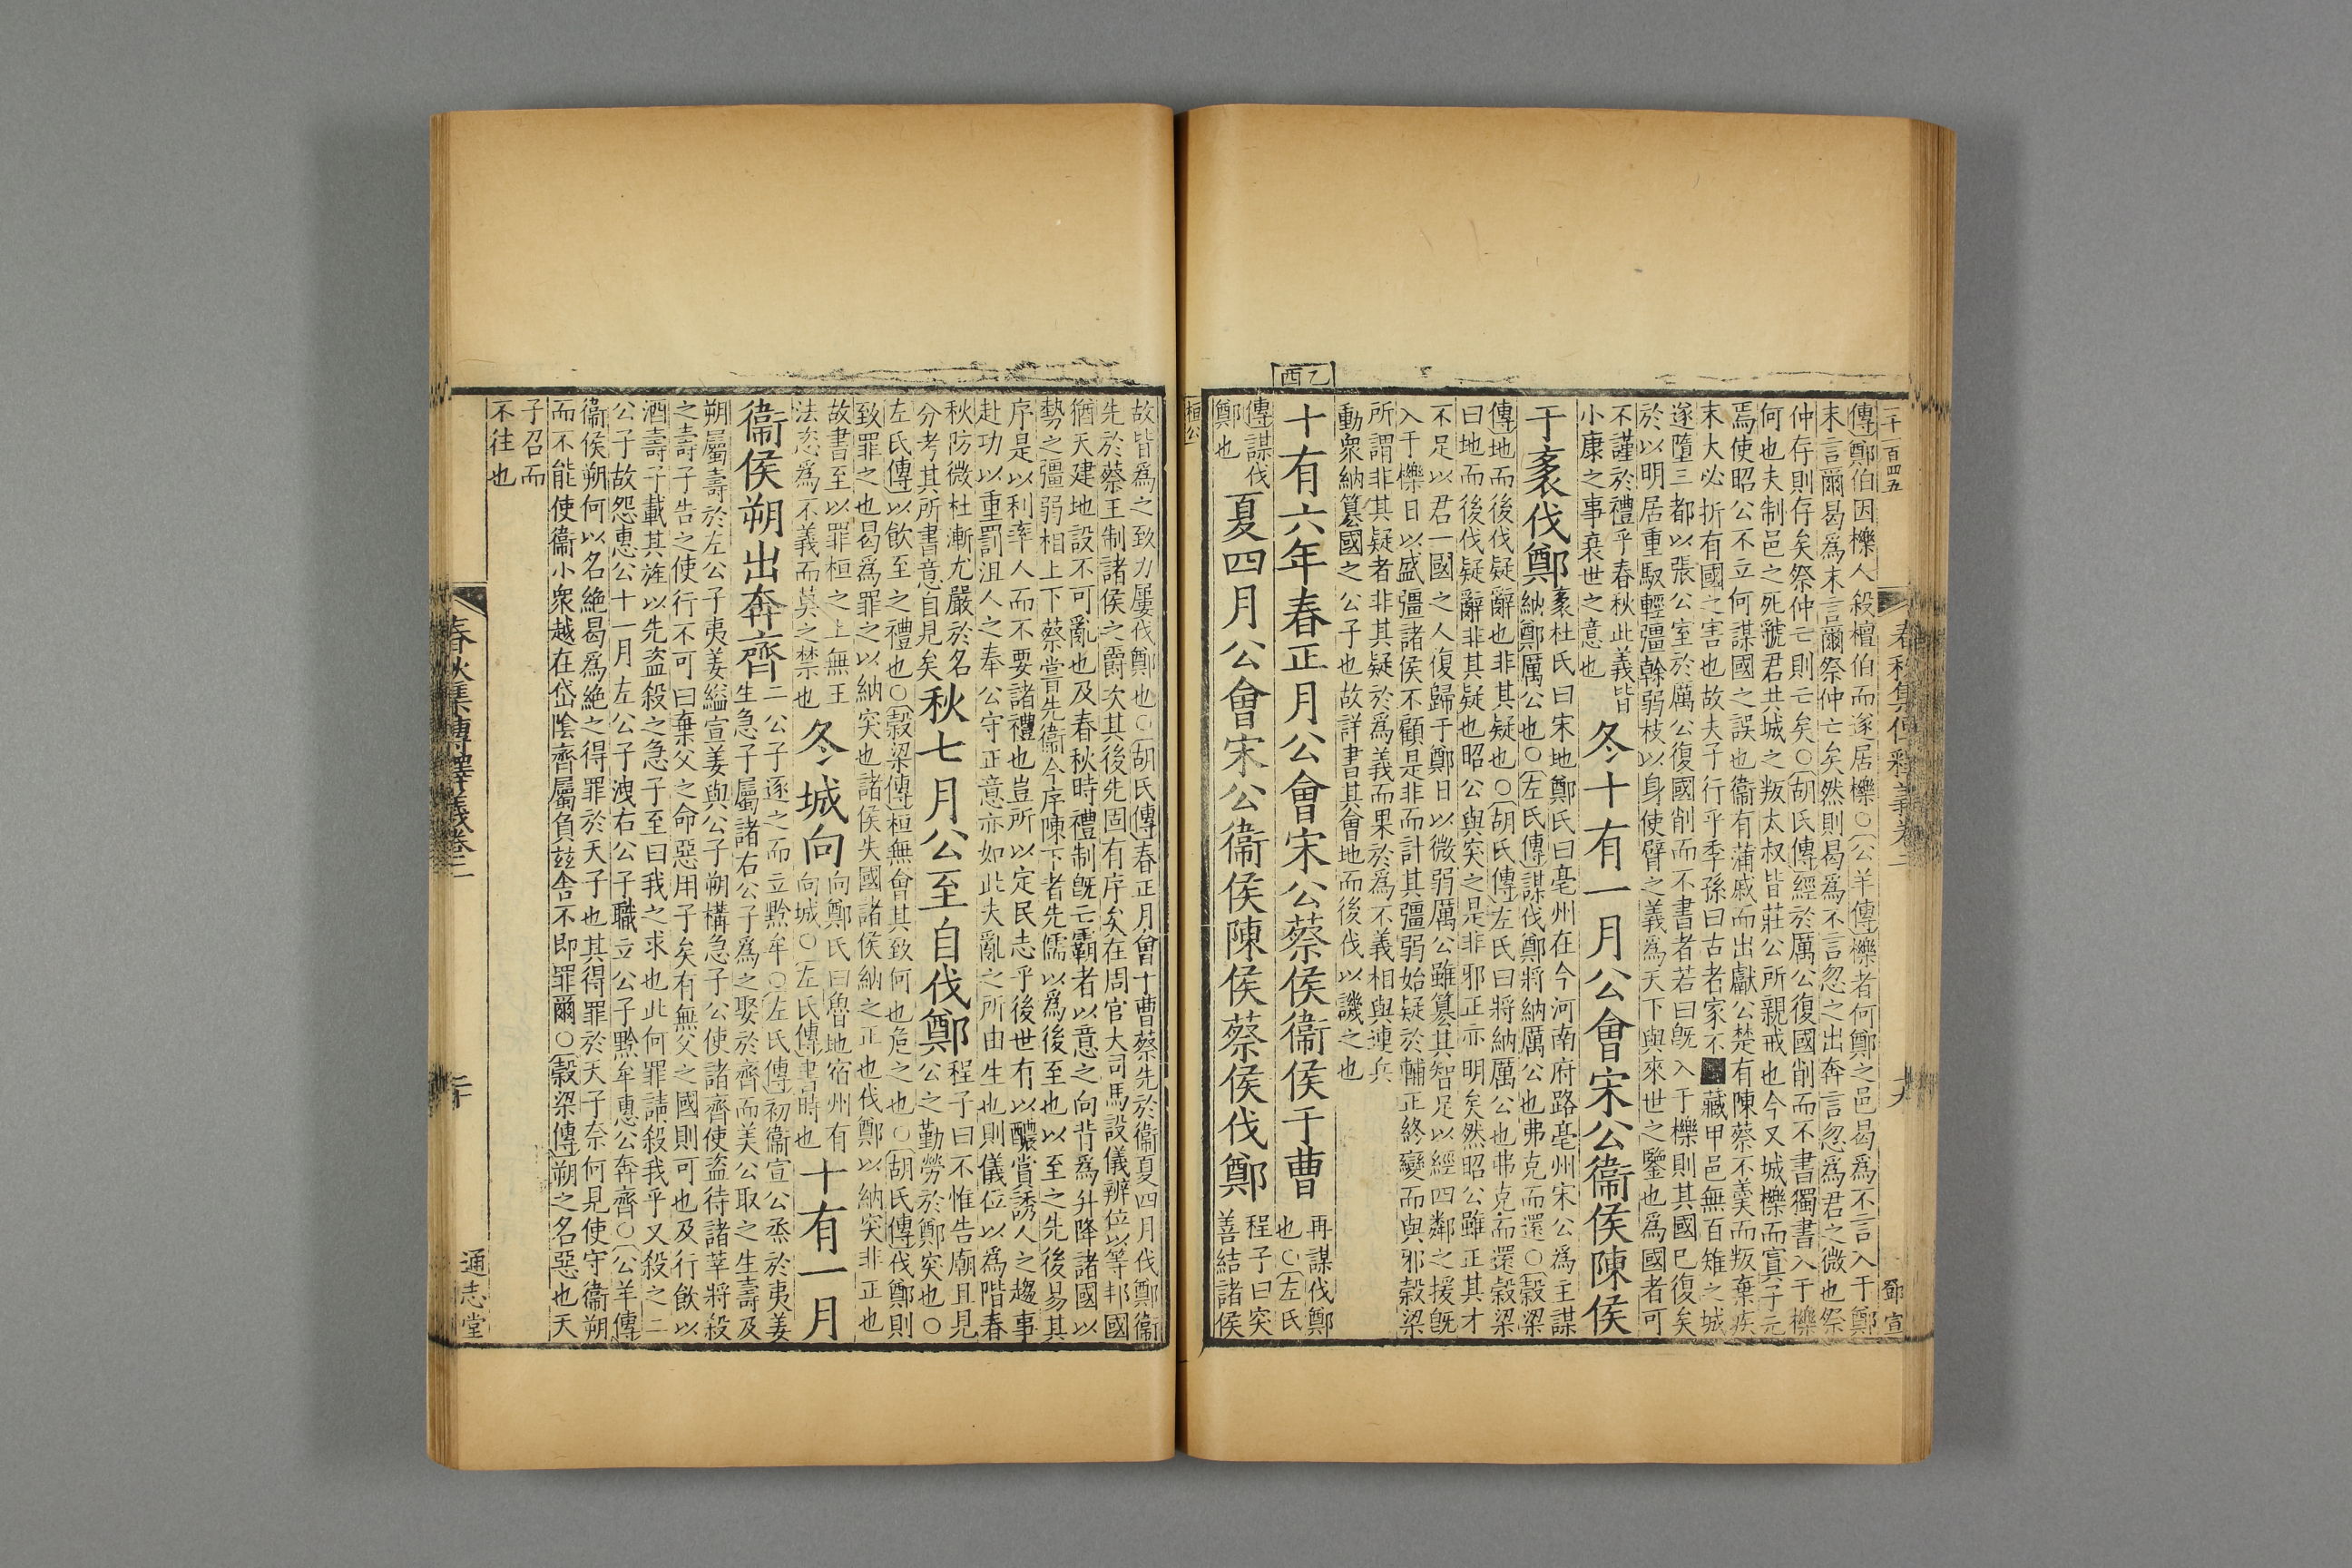 二千一百四五
春秋集傳釋義卷二
鄧宣
傳鄭伯因櫟人殺檀伯而遂居櫟○公羊傳櫟者何鄭之邑曷爲不言入于鄭
末言爾曷爲末言爾祭仲亡矣然則曷爲不言忽之出奔言忽爲君之微也祭
仲存則存矣祭仲亡則亡矣○胡氏傳經於厲公復國削而不書獨書入于櫟
何也夫制邑之死虢君共城之叛太叔皆莊公所親戒也今又城櫟而寘子元
焉使昭公不立何謀國之誤也衞有蒲戚而出獻公楚有陳蔡不羹而叛棄疾
末大必折有國之害也故夫子行乎季孫曰古者家不藏甲邑無百雉之城
遂墮三都以張公室於厲公復國削而不書者若曰旣入于櫟則其國已復矣
於以明居重馭輕彊幹弱枝以身使臂之義爲天下與來世之鑒也爲國者可
不謹於禮乎春秋此義皆
小康之事衰世之意也
冬十有一月公會宋公衞侯陳侯
于袲伐鄭
袲杜氏曰宋地鄭氏曰亳州在今河南府路亳州宋公爲主謀
納鄭厲公也○左氏傳謀伐鄭將納厲公也弗克而還○穀梁
傳地而後伐疑辭也非其疑也○胡氏傳左氏曰將納厲公也弗克而還穀梁
曰地而後伐疑辭非其疑也昭公與突之是非邪正亦明矣然昭公雖正其才
不足以君一國之人復歸于鄭日以微弱厲公雖篡其智足以經四鄰之援旣
入于櫟日以盛彊諸侯不顧是非而計其彊弱始疑於輔正終變而與邪穀梁
所謂非其疑者非其疑於爲義而果於爲不義相與連兵
動衆納篡國之公子也故詳書其會地而後伐以譏之也
乙酉
十有六年春正月公會宋公蔡侯衞侯于曹
再謀伐鄭
也○左氏
傳謀伐
鄭也
夏四月公會宋公衞侯陳侯蔡侯伐鄭
程子曰突
善結諸侯
桓公
故皆爲之致力屢伐鄭也○胡氏傳春正月會于曹蔡先於衞夏四月伐鄭衞
先於蔡王制諸侯之爵次其後先固有序矣在周官大司馬設儀辨位以等邦國
猶天建地設不可亂也及春秋時禮制旣亡霸者以意之向背爲升降諸國以
勢之彊弱相上下蔡嘗先衞今序陳下者先儒以爲後至也以至之先後易其
序是以利率人而不要諸禮也豈所以定民志乎後世有以醲賞誘人之趨事
赴功以重罰沮人之奉公守正意亦如此夫亂之所由生也則儀位以爲階春
秋防微杜漸尤嚴於名
分考其所書意自見矣
秋七月公至自伐鄭
程子曰不惟告廟且見
公之勤勞於鄭突也○
左氏傳以飲至之禮也○穀梁傳桓無會其致何也危之也○胡氏傳伐鄭則
致罪之也曷爲罪之以納突也諸侯失國諸侯納之正也伐鄭以納突非正也
故書至以罪桓之上無王
法恣爲不義而莫之禁也
冬城向
向鄭氏曰魯地宿州有
向城○左氏傳書時也
十有一月
衞侯朔出奔齊
二公子逐之而立黔牟○左氏傳初衞宣公烝於夷姜
生急子屬諸右公子爲之娶於齊而美公取之生壽及
朔屬壽於左公子夷姜縊宣姜與公子朔構急子公使諸齊使盜待諸莘將殺
之壽子告之使行不可曰棄父之命惡用子矣有無父之國則可也及行飲以
酒壽子載其旌以先盜殺之急子至曰我之求也此何罪請殺我乎又殺之二
公子故怨惠公十一月左公子洩右公子職立公子黔牟惠公奔齊○公羊傳
衞侯朔何以名絶曷爲絶之得罪於天子也其得罪於天子奈何見使守衞朔
而不能使衞小衆越在岱陰齊屬負茲舍不即罪爾○穀梁傳朔之名惡也天
子召而
不往也
春秋集傳釋義卷二
二十
通志堂